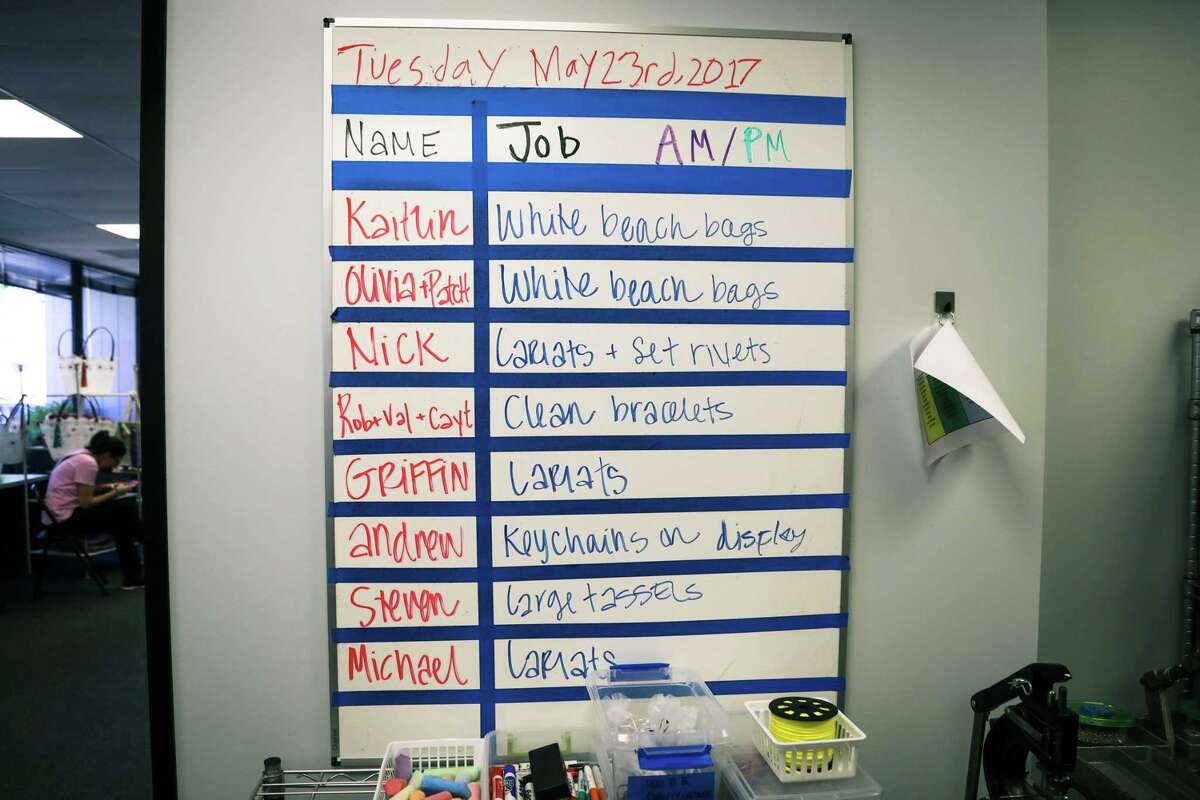 Tuesday May 23rd, 2017
Name Job AM/PM
Kaitlin White beach bags
Olivia + Patch White beach bags
Nick Lariats + set rivets
Rob + Val + Cayt Clean bracelets
GRiFFiN Lariats
andrew Keychains on display
Steven Large tassels
Michael Lariats